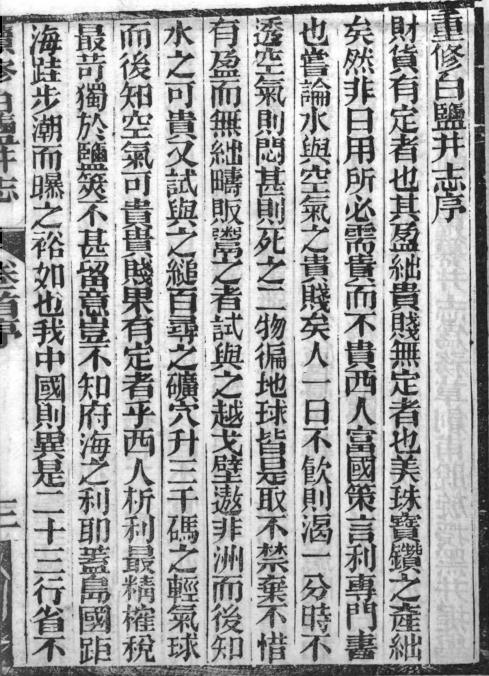 重修白鹽井志序
財貨有定者也其盈絀貴賤無定者也美珠寶鑽之產絀
矣然非日用所必需貴而不貴西人富國策言利專門書
也嘗論水與空氣之貴賤矣人一日不飲則渴一分時不
透空氣則悶甚則死之二物徧地球皆是取不禁棄不惜
有盈而無絀疇販鬻之者試與之越戈壁遨非洲而後知
水之可貴又試與之縋百尋之礦穴升三千碼之輕氣球
而後知空氣可貴貴賤果有定者乎西人析利最精榷稅
最苛獨於鹽筴不甚留意豈不知府海之利耶蓋島國距
海跬步潮而曝之裕如也我中國則異是二十三行省不
續修白鹽井志
卷首序